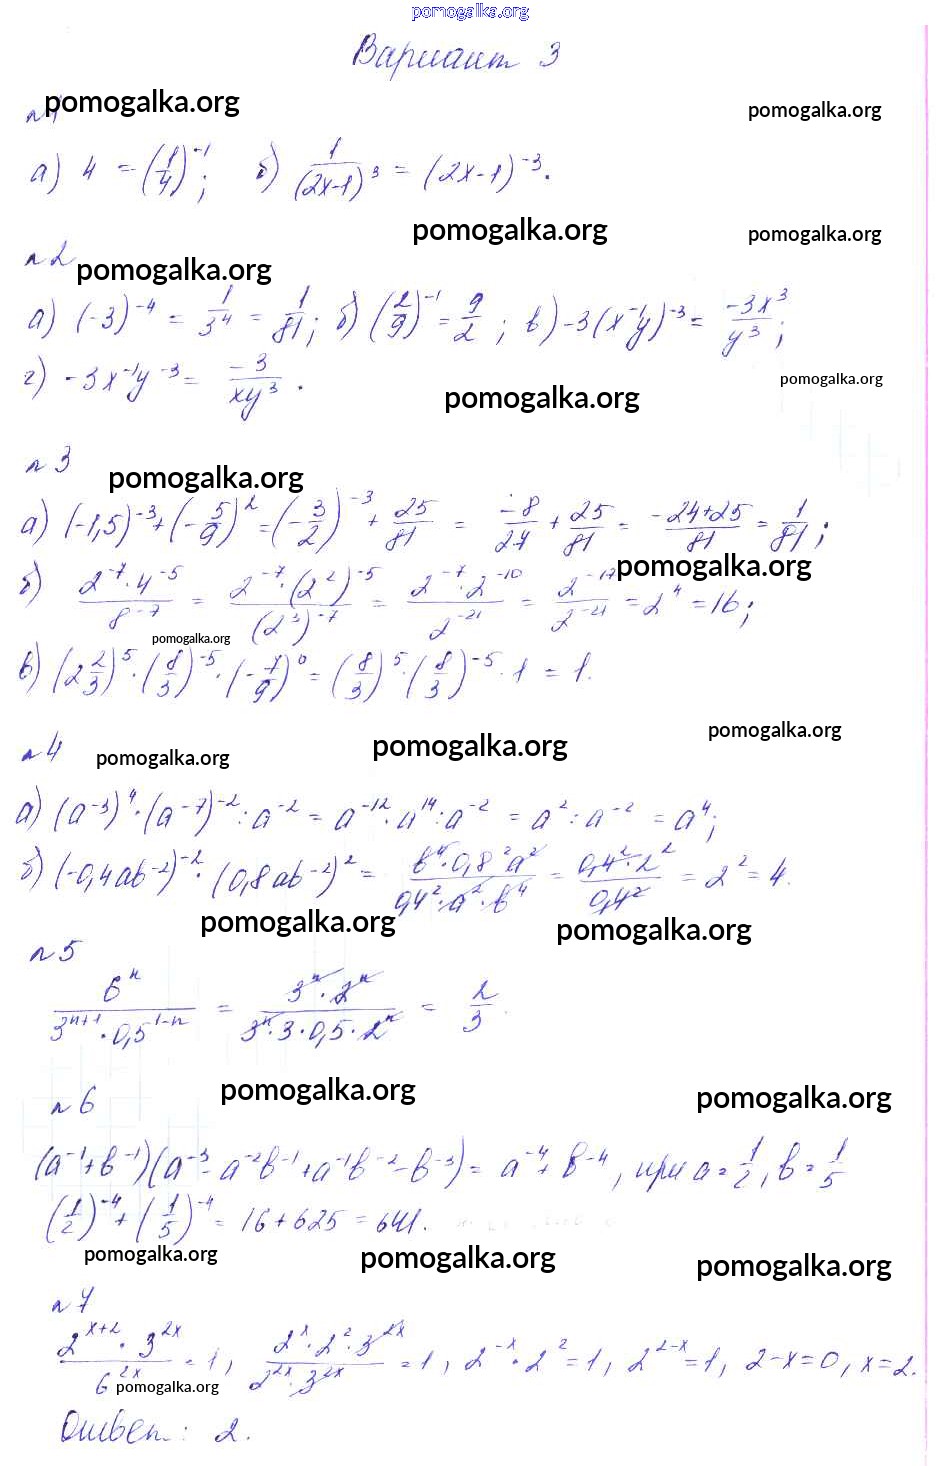 pomogalka.org
Вариант 3
pomogalka.org
n 1 pomogalka.org
а) 4 = (1/4)^-1; б) 1/(2x-1)^3 = (2x-1)^-3.
pomogalka.org pomogalka.org
n 2
pomogalka.org
а) (-3)^-4 = 1/3^4 = 1/81; б) (2/9)^-1 = 9/2; в) -3(x^-1y)^-3 = -3x^3/y^3;
г) -3x^-1y^-3 = -3/xy^3.
pomogalka.org
pomogalka.org
n 3
pomogalka.org
а) (-1,5)^-3 + (-5/9)^2 = (-3/2)^-3 + 25/81 = -8/27 + 25/81 = -24+25/81 = 1/81;
pomogalka.org
б) 2^-7 · 4^-5/8^-7 = 2^-7 · (2^2)^-5/(2^3)^-7 = 2^-7 · 2^-10/2^-21 = 2^-17/2^-21 = 2^4 = 16;
pomogalka.org
в) (2 2/3)^5 · (8/3)^-5 · (-7/9)^0 = (8/3)^5 · (8/3)^-5 · 1 = 1.
pomogalka.org
n 4 pomogalka.org pomogalka.org
а) (a^-3)^4 · (a^-7)^-2 : a^-2 = a^-12 · a^14 : a^-2 = a^2 : a^-2 = a^4;
б) (-0,4ab^-2)^-2 · (0,8ab^-2)^2 = b^4 · 0,8^2a^2/0,4^2 · a^2 · b^4 = 0,4^2 · 2^2/0,4^2 = 2^2 = 4.
pomogalka.org pomogalka.org
n 5
6^n/3^n+1 · 0,5^1-n = 3^n · 2^n/3^n · 3 · 0,5 · 2^n = 2/3.
pomogalka.org pomogalka.org
n 6
(a^-1+b^-1)(a^-3 - a^-2b^-1 + a^-1b^-2 - b^-3) = a^-4 + b^-4, при a = 1/2, b = 1/5
(1/2)^-4 + (1/5)^-4 = 16 + 625 = 641.
pomogalka.org pomogalka.org pomogalka.org
n 7
2^x+2 · 3^2x/6^2x = 1, 2^x · 2^2 · 3^2x/2^2x · 3^2x = 1, 2^-x · 2^2 = 1, 2^2-x = 1, 2-x=0, x=2.
pomogalka.org
Ответ: 2.